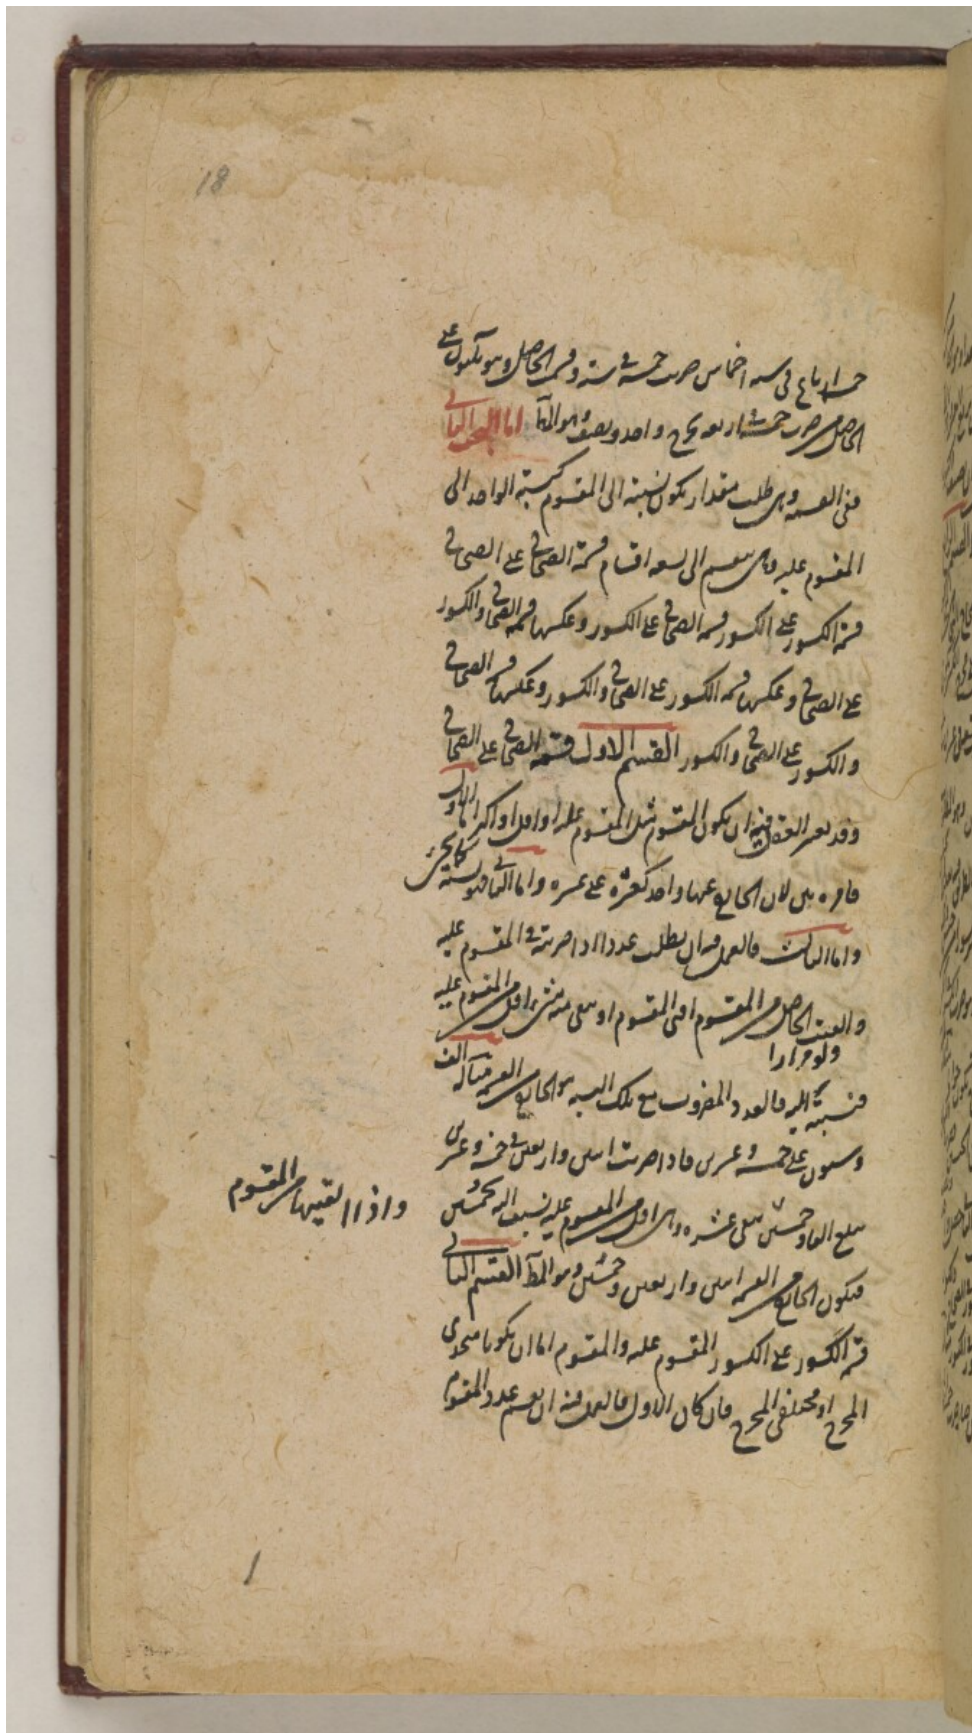 18
خمسة ارباع فى ستة اخماس ضربت خمسة فى ستة وقسمت الحاصل وهو ثلثون على
الحاصل من ضرب خمسة فى اربعة يخرج واحد ونصف وهو المط اما البحث الثانى
ففى القسمة وهى طلب مقدار يكون نسبته الى المقسوم كنسبة الواحد الى
المقسوم عليه وهى تنقسم الى تسعة اقسام قسمة الصحاح على الصحاح
قسمة الكسور على الكسور قسمة الصحاح على الكسور وعكسها قسمة الصحاح والكسور
على الصحاح وعكسها قسمة الكسور على الصحاح والكسور وعكسها قسمة الصحاح
والكسور على الصحاح والكسور القسم الاول قسمة الصحاح على الصحاح
وقد يعبر العقل فيه ان يكون المقسوم مثل المقسوم عليه او اقل او اكثر اما الاول
لان الخارج عنها واحد كعشرة على عشرة واما الثانى
واما الثالث فالعمل فيه ان يطلب عددا اذا ضربته فى المقسوم عليه
والقيت الحاصل من المقسوم افنى المقسوم او بقى منه شئ اقل من المقسوم عليه
ولو مرارا
فنسبته اليه فالعدد المضروب مع تلك النسبة هو الخارج من القسمة مثاله الف
وستون على خمسة وعشرين فاذا ضربت اثنين واربعين فى خمسة وعشرين
يبلغ الفا وخمسين بقى عشرة وهى اقل من المقسوم عليه نسبت اليه بخمسين
واذا القيتها من المقسوم
فيكون الخارج من القسمة اثنين واربعين وخمسين وهو المط القسم الثانى
قسمة الكسور على الكسور المقسوم عليه والمقسوم اما ان يكونا متحدى
المخرج او مختلفى المخرج فان كان الاول فالعمل فيه ان يقسم عدد المقسوم